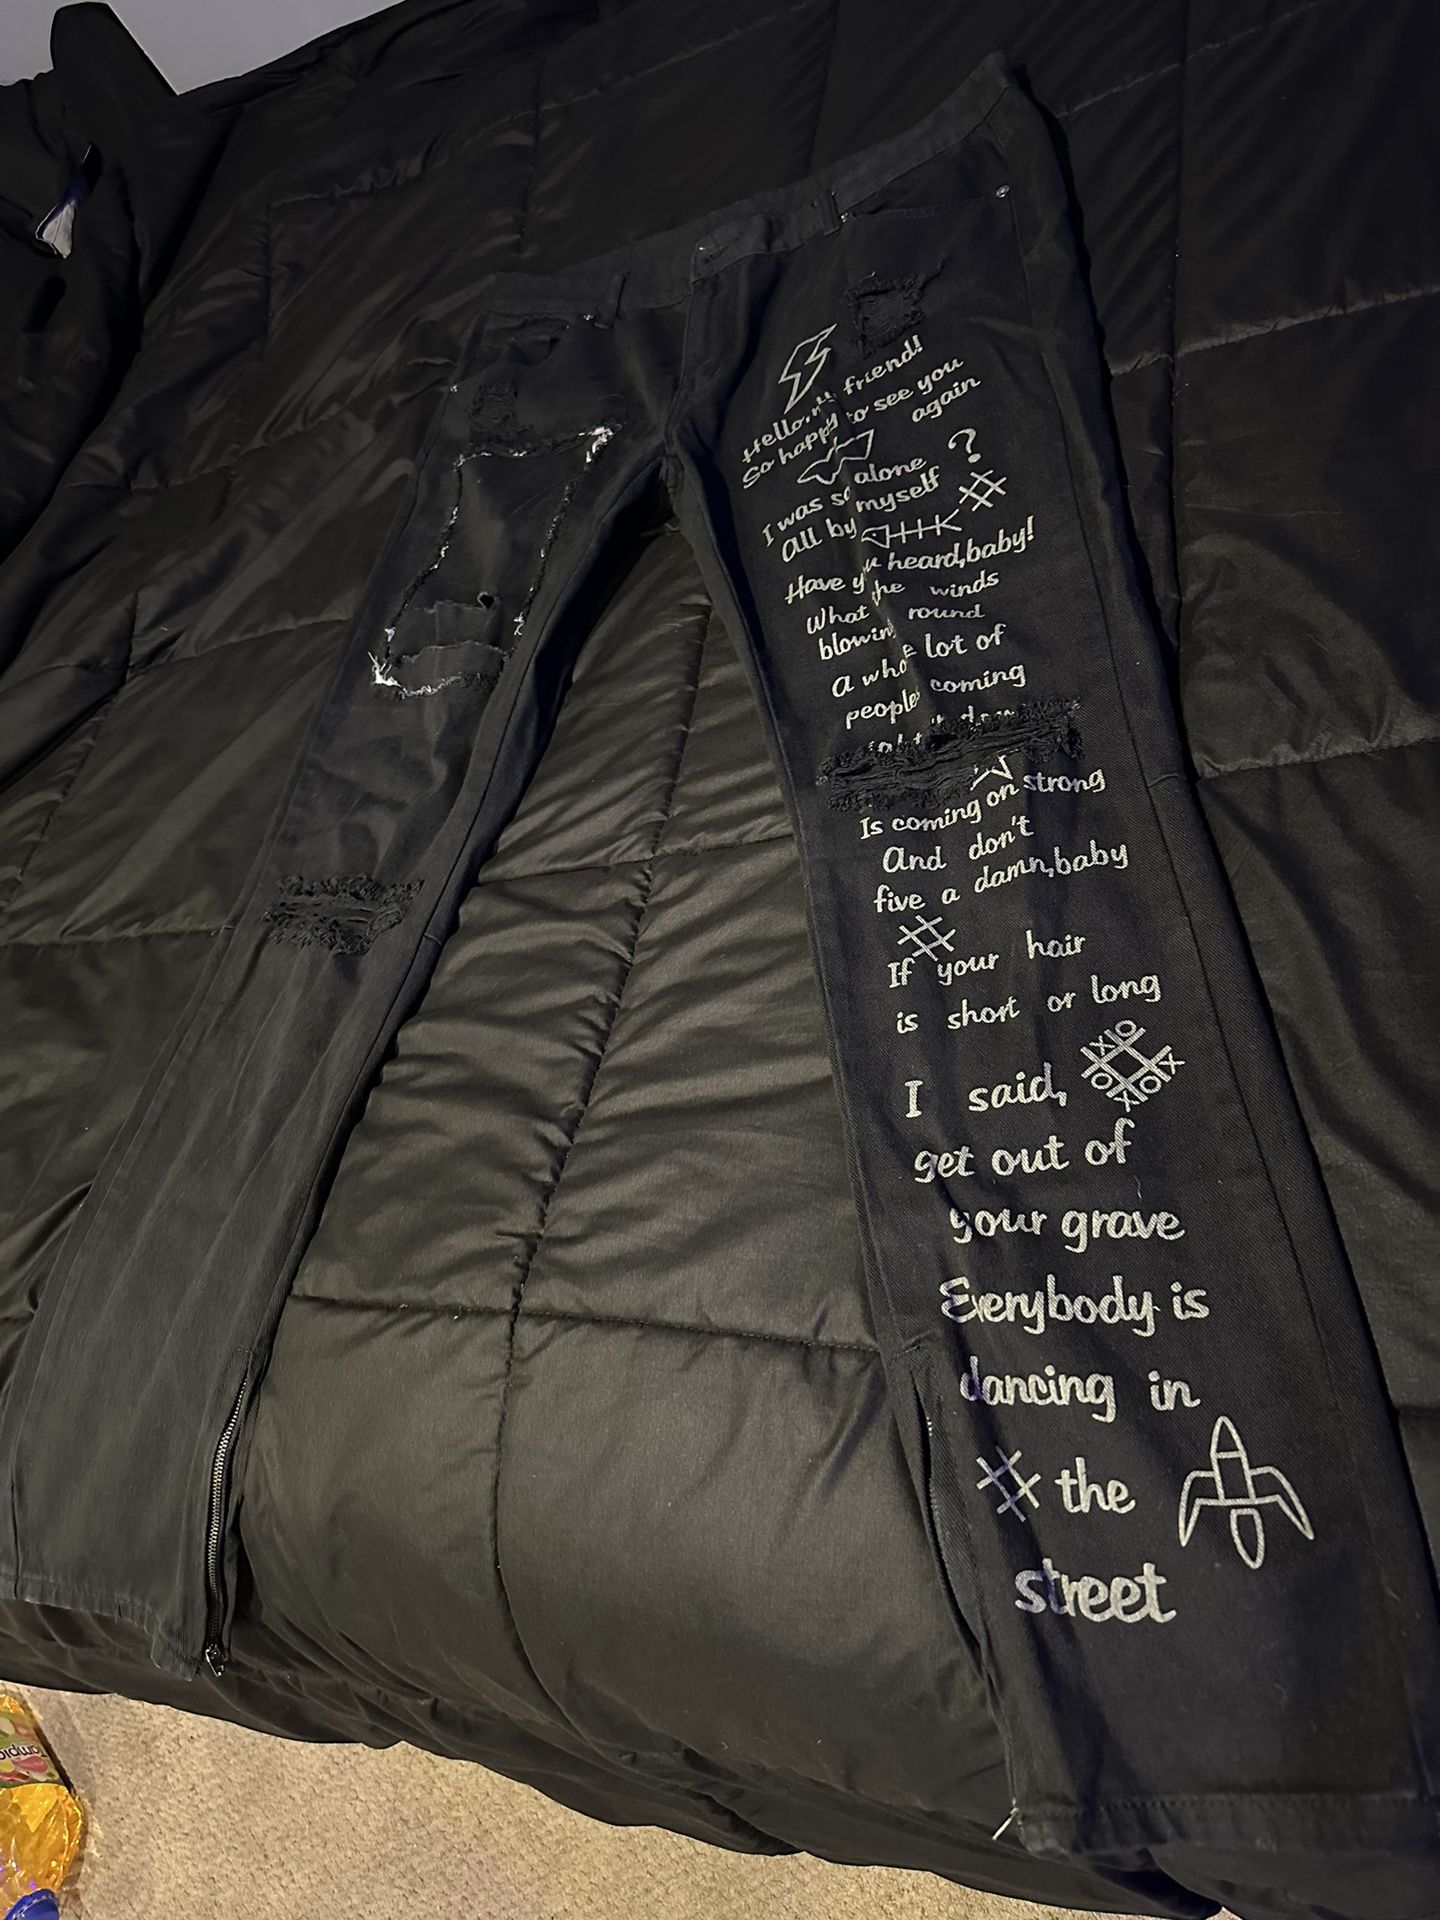 Hello, my friend!
So happy to see you
again
I was so alone ?
all by myself
Have you heard,baby!
What the winds
blowin round
a whole lot of
people coming
Is coming on strong
and don't
five a damn,baby
If your hair
is short or long
I said,
get out of
your grave
Everybody is
dancing in
the
street